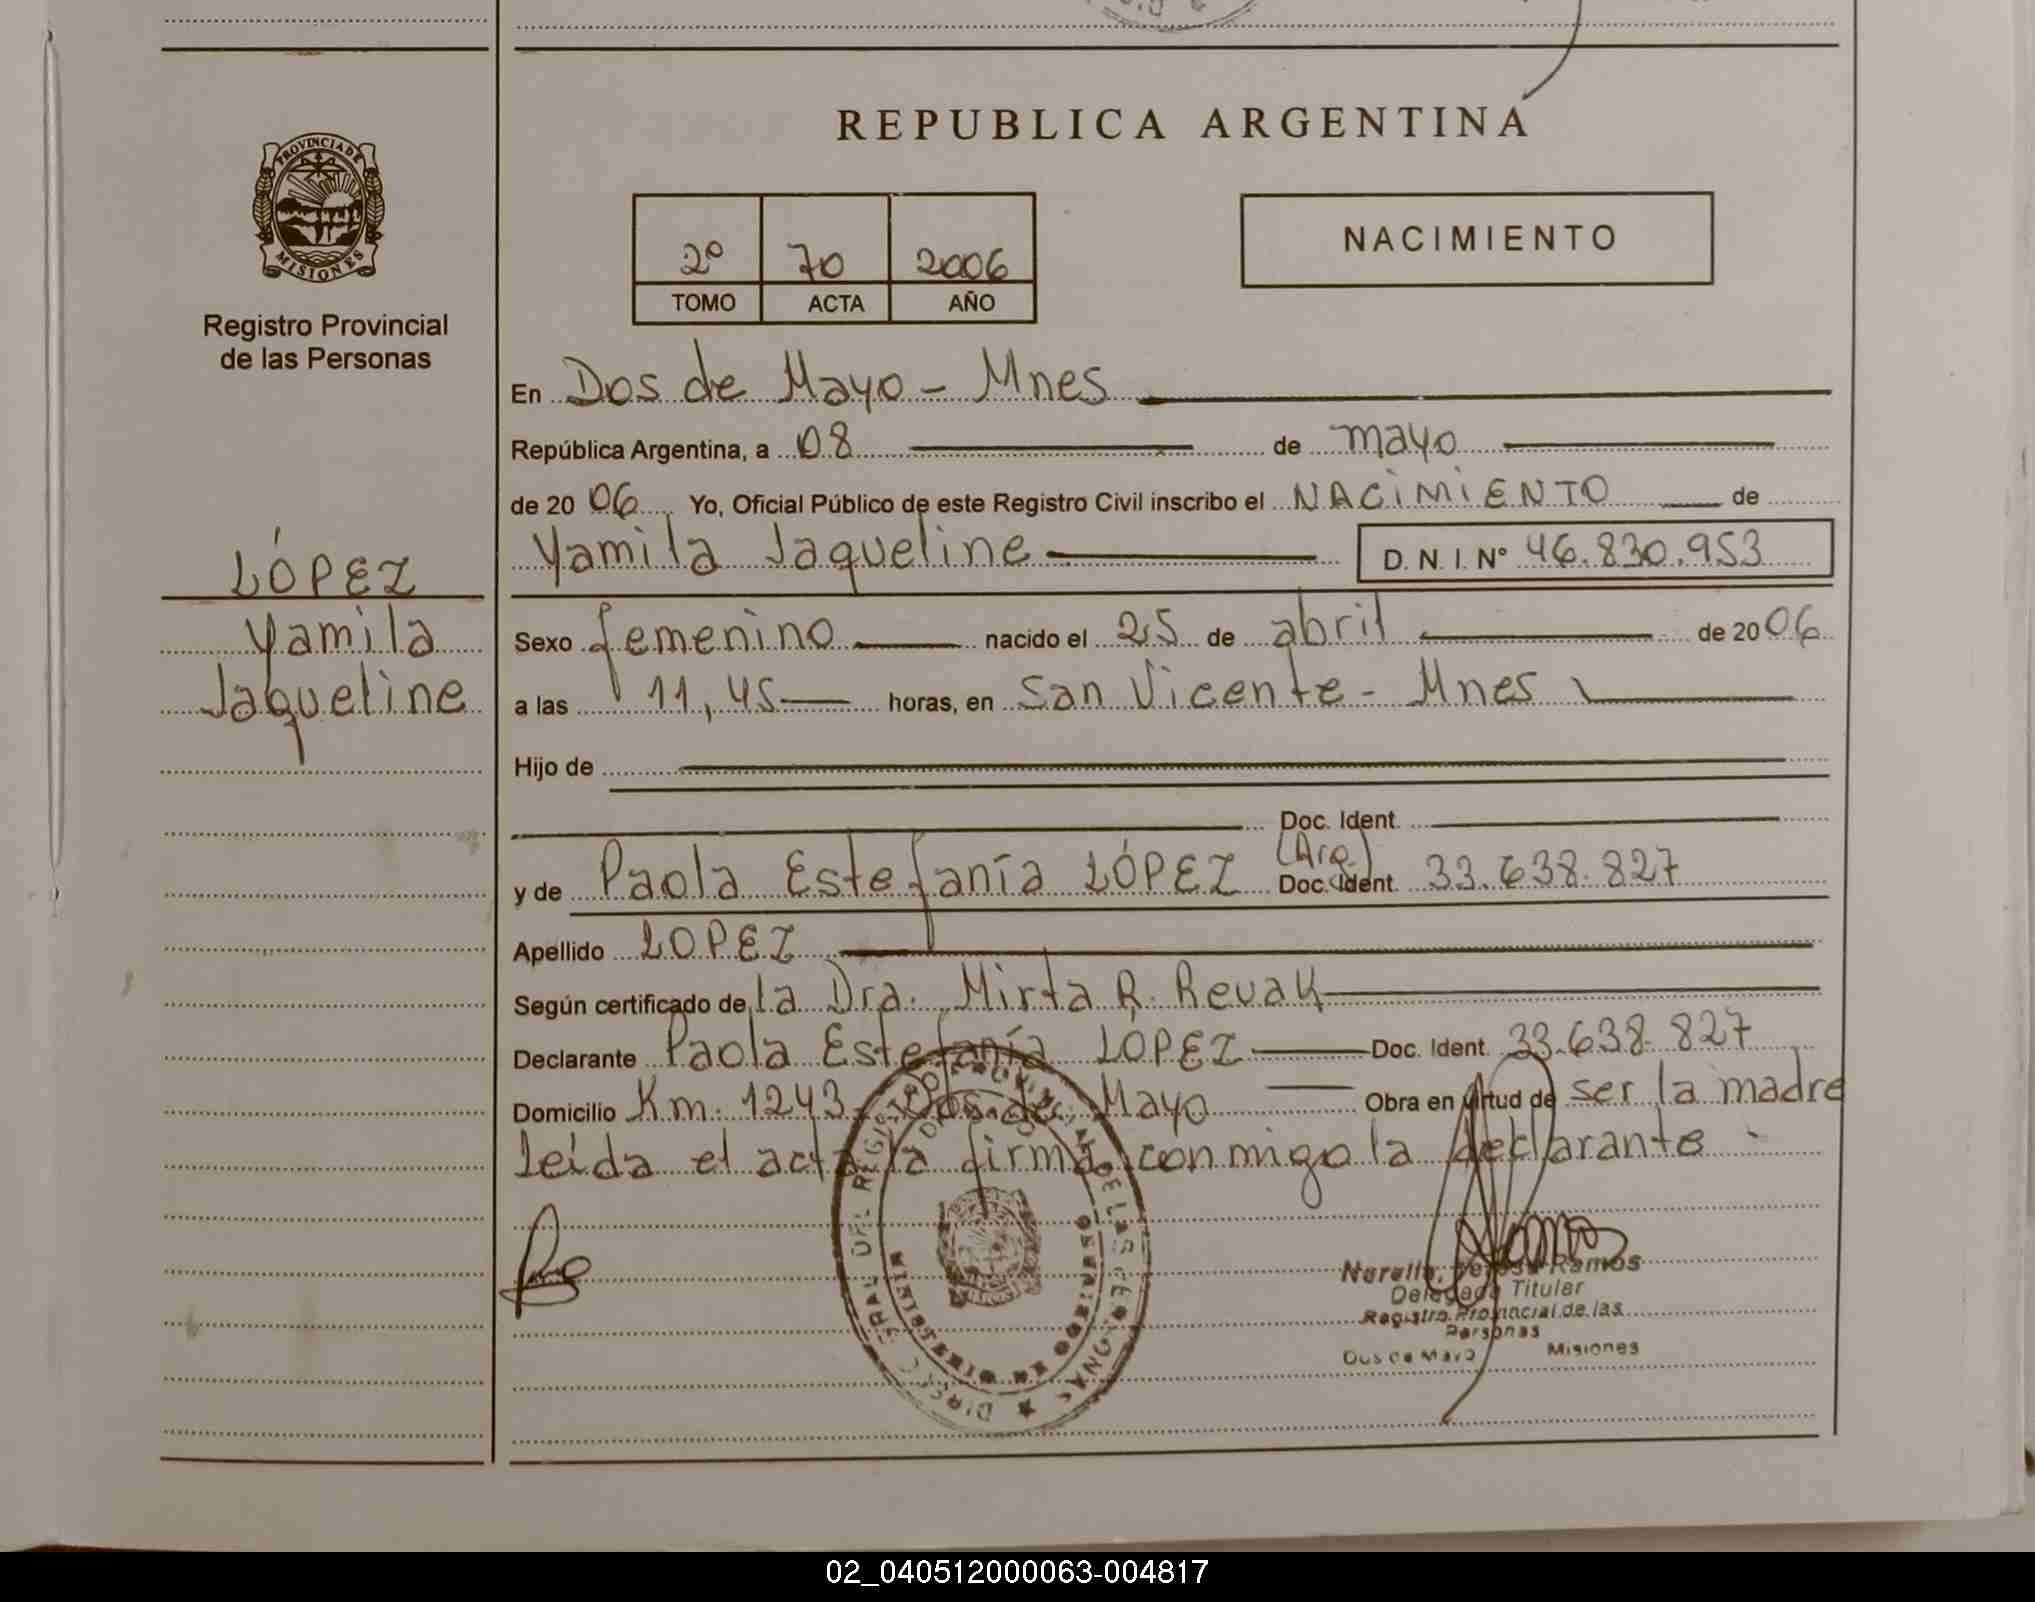 REPUBLICA ARGENTINA
PROVINCIA DE
MISIONES
Registro Provincial
de las Personas
2º 70 2006
TOMO ACTA AÑO
NACIMIENTO
LÓPEZ
Yamila
Jaqueline
En Dos de Mayo - Mnes
República Argentina, a 08 de mayo
de 2006 Yo, Oficial Público de este Registro Civil inscribo el NACIMIENTO de
Yamila Jaqueline D. N. I. Nº 46.830.953
Sexo femenino nacido el 25 de abril de 2006
a las 11,45 horas, en San Vicente - Mnes
Hijo de
Doc. Ident.
y de Paola Estefanía LÓPEZ (Arg.) Doc. Ident. 33.638.827
Apellido LOPEZ
Según certificado de la Dra. Mirta R. Revak
Declarante Paola Estefanía LÓPEZ Doc. Ident. 33.638.827
Domicilio Km. 1243, Dos de Mayo Obra en virtud de ser la madre
Leída el acta la firma conmigo la declarante.
Teresa Ramos
Delegada Titular
Registro Provincial de las
Personas
Dos de Mayo Misiones
02_040512000063-004817